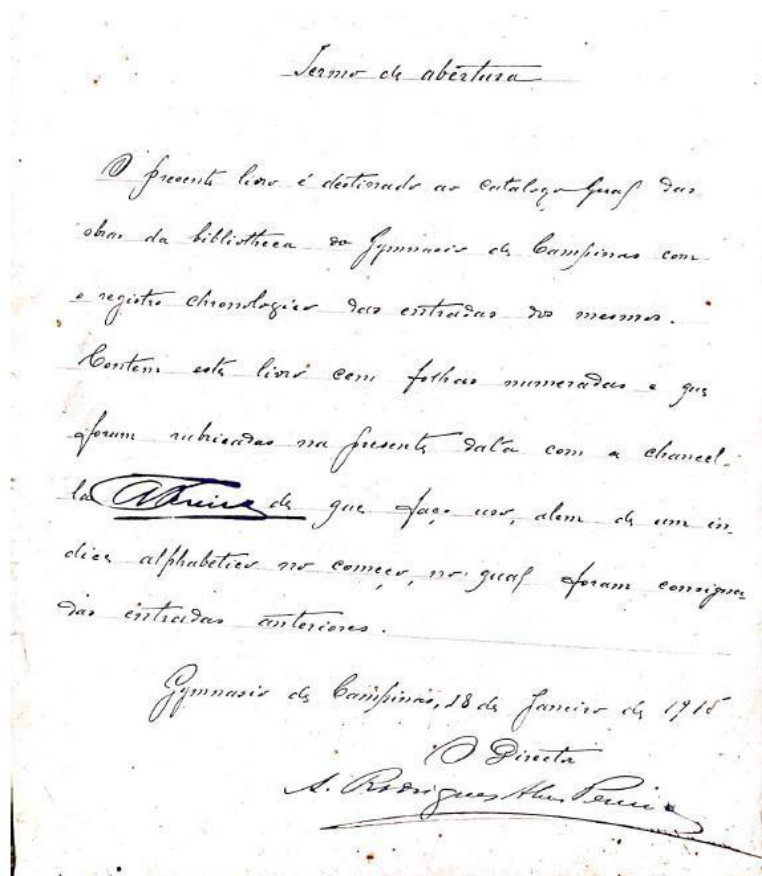 Termo de abertura
O presente livro é destinado ao catalogo geral das
obras da bibliotheca do Gymnasio de Campinas com
o registro chronologico das entradas dos mesmos.
Contem este livro cem folhas numeradas e que
foram rubricadas na presente data com a chancel-
la de que faço uso, alem de um in-
dice alphabetico no começo, no qual foram consigna-
das entradas anteriores.
Gymnasio de Campinas, 18 de Janeiro de 1915
O Director
A. Rodrigues Alves Pereira